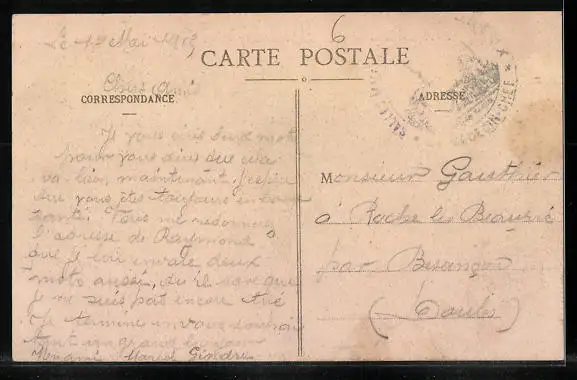 Le 12 Mai 1915
6
CARTE POSTALE
Chers Amis
CORRESPONDANCE
ADRESSE
Je vous écris deux mots
pour vous dire que cela
va bien, maintenant. J'espère
que vous êtes toujours en bonne
santé. Vous me redonnerez
l'adresse de Raymond
que je lui envoie deux
mots aussi, qu'il save que
je ne suis pas encore tué
Je termine en vous donnant
Marcel Gindre
Monsieur Gauthier
à Roche lez Beaupré
par Besançon
(Doubs)